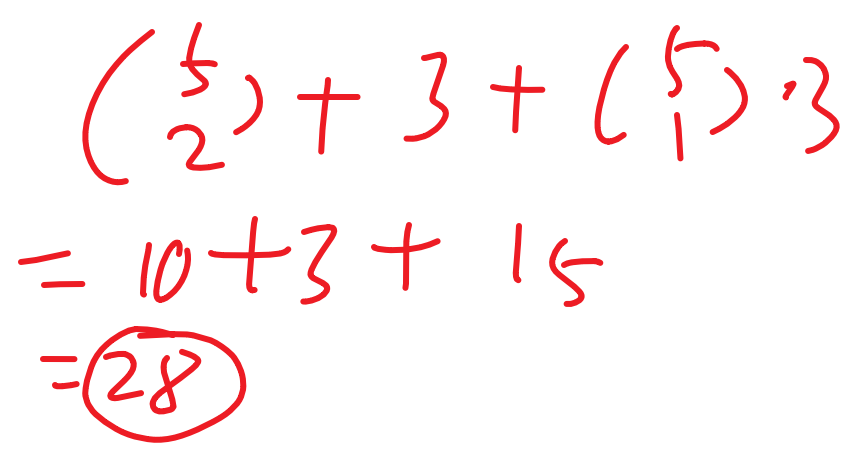 (5 2) + 3 + (5 1) · 3
= 10 + 3 + 15
= 28